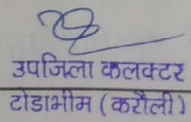 उपजिला कलक्टर
टोडाभीम (करौली)